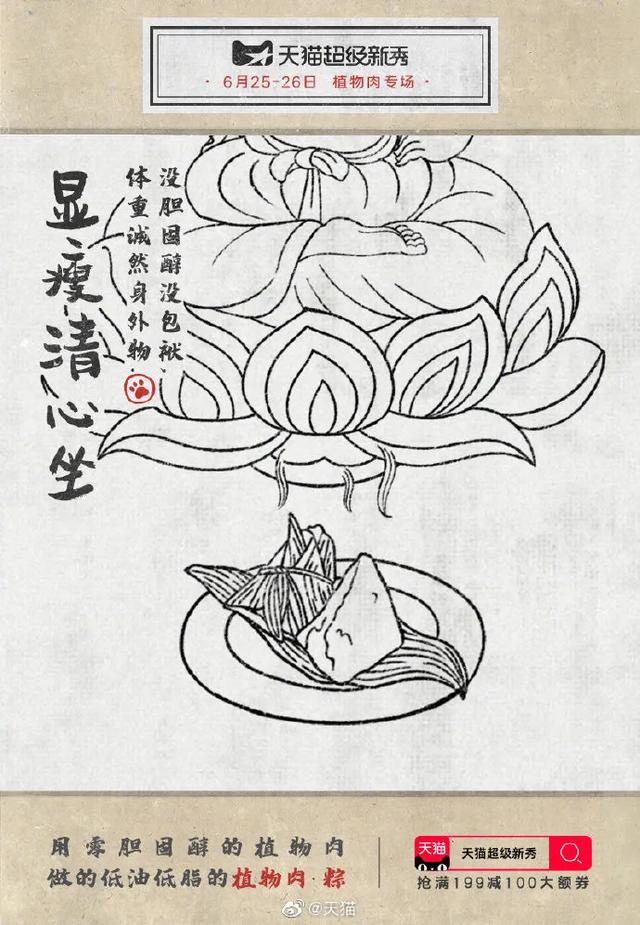 天猫超级新秀
·6月25-26日 植物肉专场·
显瘦清心坐
没胆固醇没包袱
体重诚然身外物
用零胆固醇的植物肉
做的低油低脂的植物肉粽
天猫
天猫超级新秀
抢满199减100大额券
@天猫